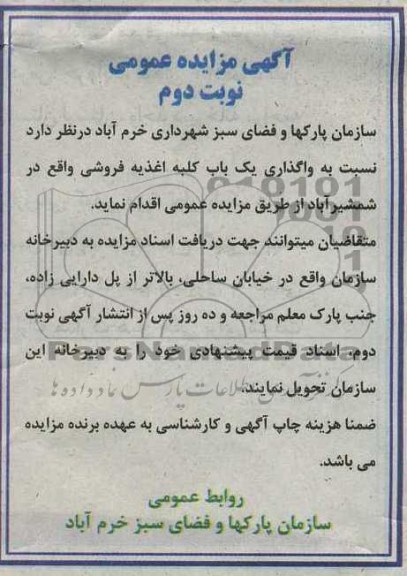 آگهی مزایده عمومی
نوبت دوم
سازمان پارکها و فضای سبز شهرداری خرم آباد درنظر دارد
نسبت به واگذاری یک باب کلبه اغذیه فروشی واقع در
شمشیرآباد از طریق مزایده عمومی اقدام نماید.
متقاضیان میتوانند جهت دریافت اسناد مزایده به دبیرخانه
سازمان واقع در خیابان ساحلی، بالاتر از پل دارایی زاده،
جنب پارک معلم مراجعه و ده روز پس از انتشار آگهی نوبت
دوم، اسناد قیمت پیشنهادی خود را به دبیرخانه این
سازمان تحویل نمایند.
ضمنا هزینه چاپ آگهی و کارشناسی به عهده برنده مزایده
می باشد.
روابط عمومی
سازمان پارکها و فضای سبز خرم آباد
ParsNamadData